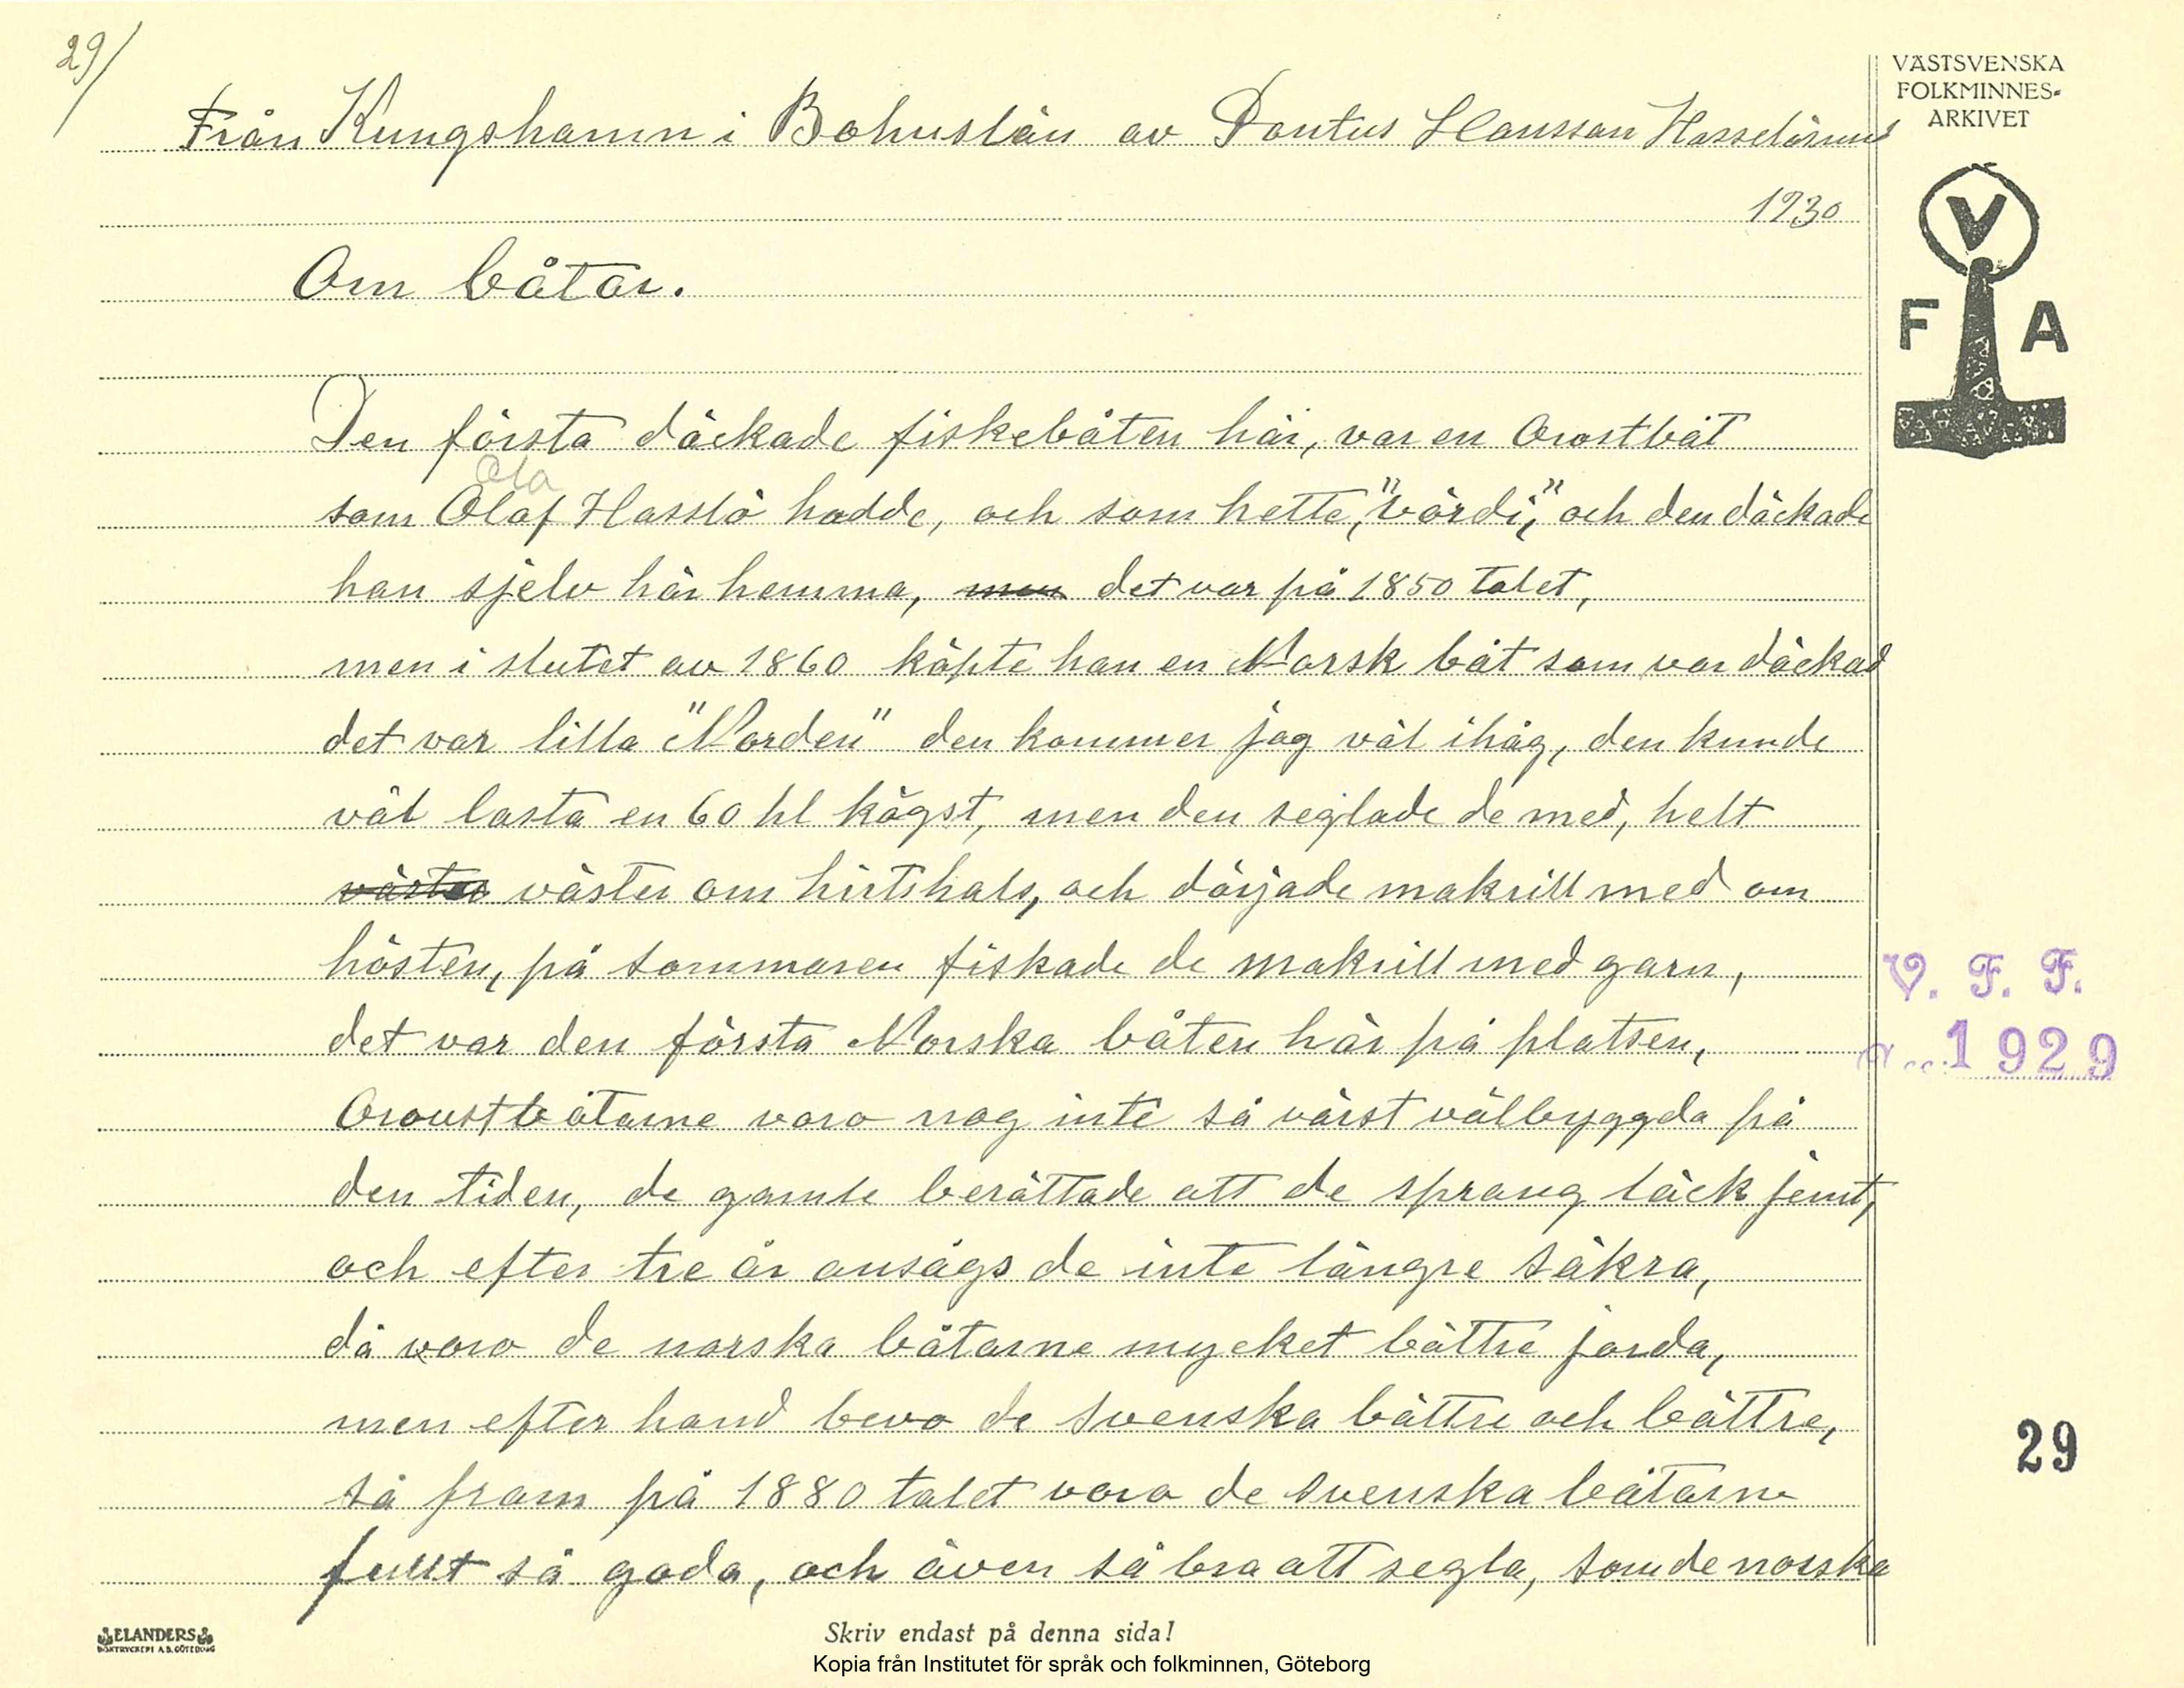 29/
VÄSTSVENSKA
FOLKMINNES-
ARKIVET
V
F A
Från Kungshamn i Bohuslän av Pontus Hansson Hasselösund
1930
Om båtar.
Den första däckade fiskebåten här, var en Orostbåt
Ola
som Olaf Hasslö hadde, och som hette, "värdi", och den däckade
han sjelv här hemma, men det var på 1850 talet,
men i slutet av 1860 köpte han en Norsk båt som var däckad
det var lilla "Norden" den kommer jag väl ihåg, den kunde
väl lasta en 60 hl högst, men den seglade de med, helt
väster väster om hirtshals, och dörjade makrill med om
hösten, på sommaren fiskade de makrill med garn,
det var den första Norska båten här på platsen,
Oroustbåtarne voro nog inte så värst välbyggda på
den tiden, de gamle berättade att de sprang läck jemt,
och efter tre år ansågs de inte längre säkra,
då voro de norska båtarne mycket bättre jorda,
men efter hand bevo de svenska bättre och bättre,
så fram på 1880 talet voro de svenska båtarne
fullt så goda, och även så bra att segla, som de norska
V. F. F.
1929
29
ELANDERS
BOKTRYCKERI A.B. GÖTEBORG
Skriv endast på denna sida!
Kopia från Institutet för språk och folkminnen, Göteborg